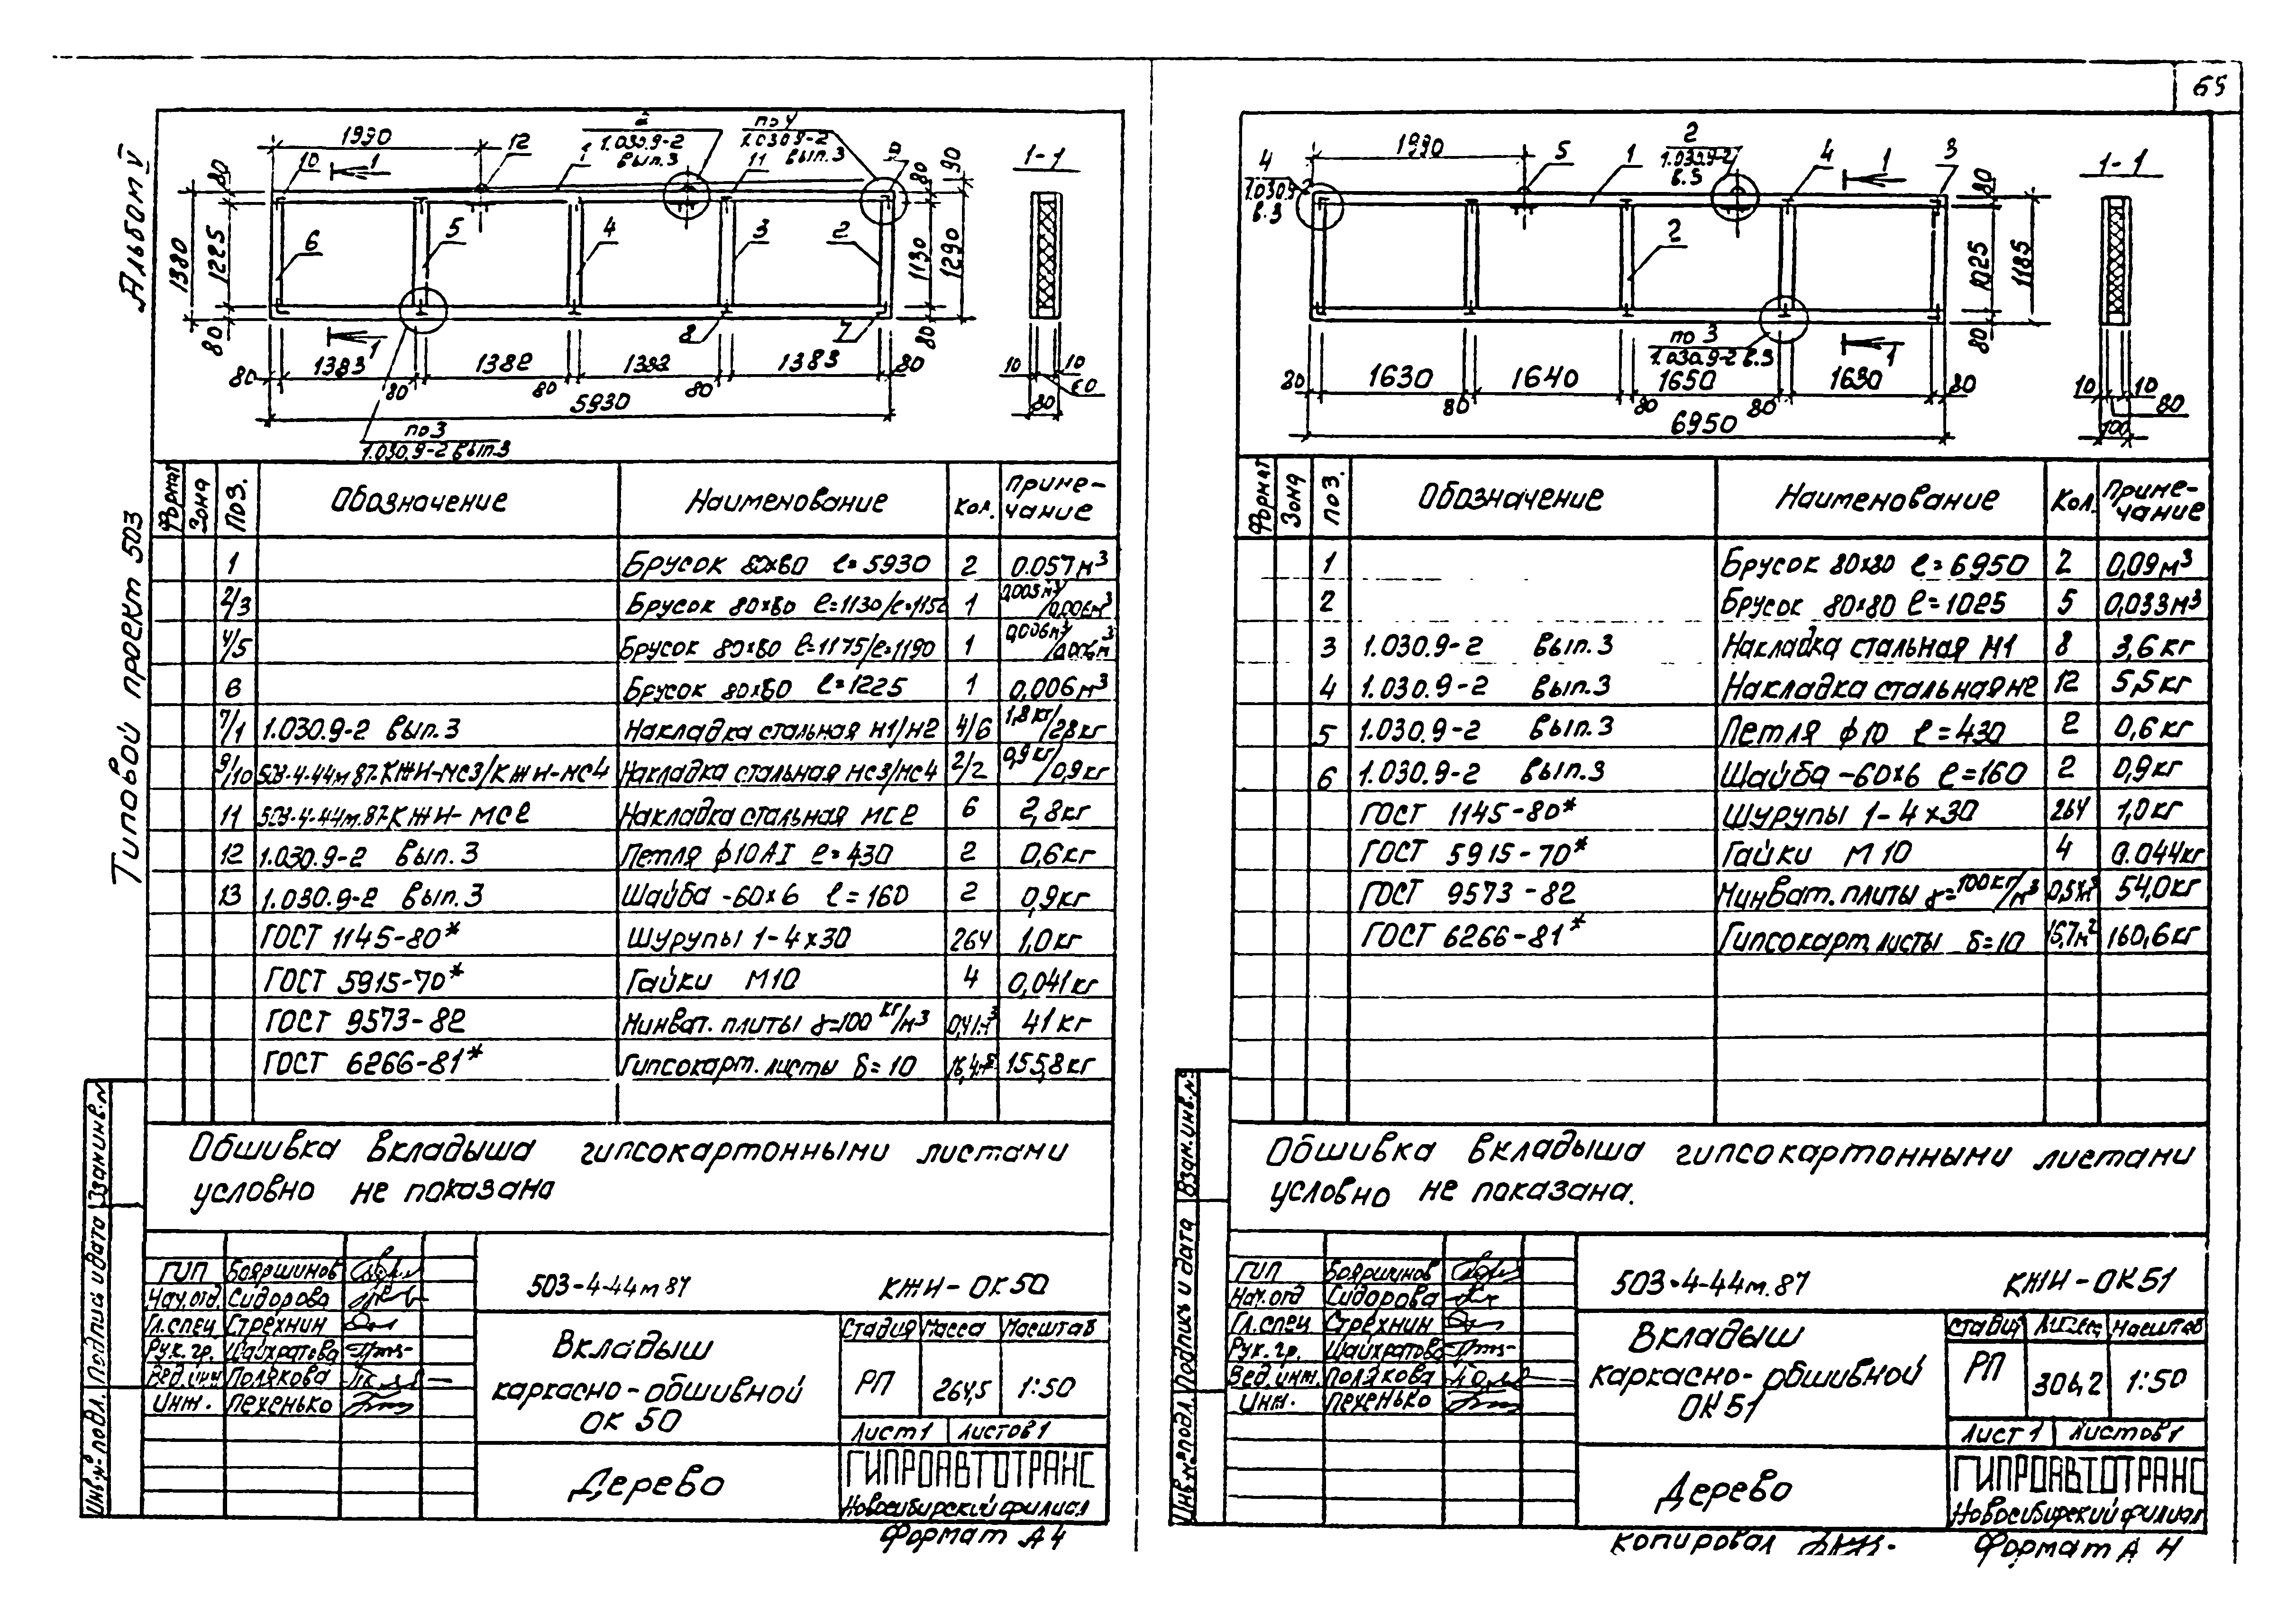 65
Альбом V
Типовой проект 503
1990
12
1
2
1.030.9-2
вып.3
по 4
1.030.9-2
вып.3
11
9
10
1
80
90
80
1380
1225
80
6
5
4
3
2
1130
1290
80
8
7
1
80
1383
80
1382
80
1382
80
1383
80
5930
по 3
1.030.9-2 вып.3
1-1
10
10
60
80
Формат
Зона
Поз.
Обозначение
Наименование
Кол.
Приме-
чание
1 Брусок 80х60 ℓ=5930 2 0.057м³
2/3 Брусок 80х60 ℓ=1130/ℓ=1150 1 0,005м³/0,006м³
4/5 Брусок 80х60 ℓ=1175/ℓ=1190 1 0,006м³/0,006м³
6 Брусок 80х60 ℓ=1225 1 0,006м³
7/1 1.030.9-2 вып.3 Накладка стальная Н1/Н2 4/6 1,8кг/2,8кг
9/10 503-4-44м87-КЖИ-МС3/КЖИ-МС4 Накладка стальная МС3/МС4 2/2 0,9кг/0,9кг
11 503-4-44м.87-КЖИ-МС2 Накладка стальная МС2 6 2,8кг
12 1.030.9-2 вып.3 Петля ф10АI ℓ=430 2 0,6кг
13 1.030.9-2 вып.3 Шайба -60х6 ℓ=160 2 0,9кг
ГОСТ 1145-80* Шурупы 1-4х30 264 1,0кг
ГОСТ 5915-70* Гайки М10 4 0,041кг
ГОСТ 9573-82 Минват. плиты γ=100 кг/м³ 0,41м³ 41кг
ГОСТ 6266-81* Гипсокарт. листы δ=10 16,4м² 155,8кг
Обшивка вкладыша гипсокартонными листами
условно не показана
Взам.инв.№
Подпись и дата
Инв.№ подл.
ГИП Бояршинов
Нач.отд. Сидорова
Гл.спец. Стрехнин
Рук.гр. Шайхратова
Вед.инж. Полякова
Инж. Пехенько
503-4-44м 87 КЖИ-ОК50
Вкладыш
каркасно-обшивной
ОК 50
Стадия Масса Масштаб
РП 264,5 1:50
Лист 1 Листов 1
Дерево
ГИПРОАВТОТРАНС
Новосибирский филиал
Формат А4
4
1.030.9-2
в.3
1990
5
1
2
1.030.9-2
в.3
4
1
3
80
1025
1185
80
2
по 3
1.030.9-2 в.3
1
80
1630
80
1640
80
1650
80
1630
80
6950
1-1
10
10
80
100
Формат
Зона
Поз.
Обозначение
Наименование
Кол.
Приме-
чание
1 Брусок 80х80 ℓ=6950 2 0,09м³
2 Брусок 80х80 ℓ=1025 5 0,033м³
3 1.030.9-2 вып.3 Накладка стальная Н1 8 3,6кг
4 1.030.9-2 вып.3 Накладка стальная Н2 12 5,5кг
5 1.030.9-2 вып.3 Петля ф10 ℓ=430 2 0,6кг
6 1.030.9-2 вып.3 Шайба -60х6 ℓ=160 2 0,9кг
ГОСТ 1145-80* Шурупы 1-4х30 264 1,0кг
ГОСТ 5915-70* Гайки М10 4 0.044кг
ГОСТ 9573-82 Минват. плиты γ=100кг/м³ 54,0кг
ГОСТ 6266-81* Гипсокарт. листы δ=10 160,6кг
Обшивка вкладыша гипсокартонными листами
условно не показана.
Взам.инв.№
Подпись и дата
Инв.№ подл.
ГИП Бояршинов
Нач.отд Сидорова
Гл.спец Стрехнин
Рук.гр. Шайхратова
Вед.инж. Полякова
Инж. Пехенько
503-4-44м.87 КЖИ-ОК51
Вкладыш
каркасно-обшивной
ОК51
Стадия Масса Масштаб
РП 304,2 1:50
Лист 1 Листов 1
Дерево
ГИПРОАВТОТРАНС
Новосибирский филиал
Копировал
Формат А 4